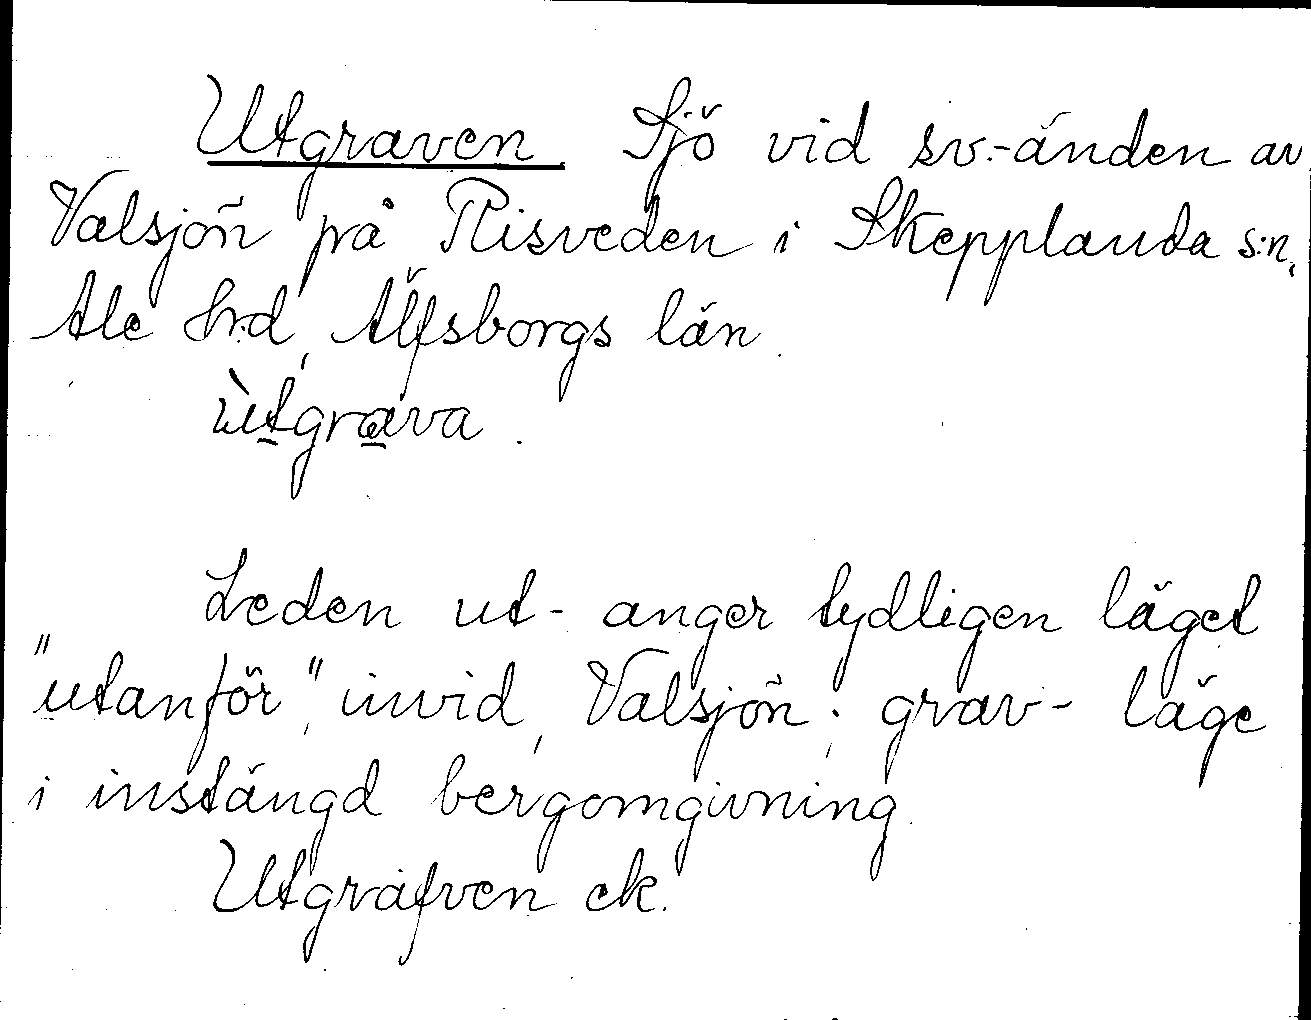 Utgraven Sjö vid sv.-änden av
Valsjön på Risveden i Skepplanda s:n,
Ale hrd, Älfsborgs län.
ùtgrava.
Leden ut- anger tydligen läget
"utanför", invid, Valsjön; grav- läge
i instängd bergomgivning.
Utgrafven ek.